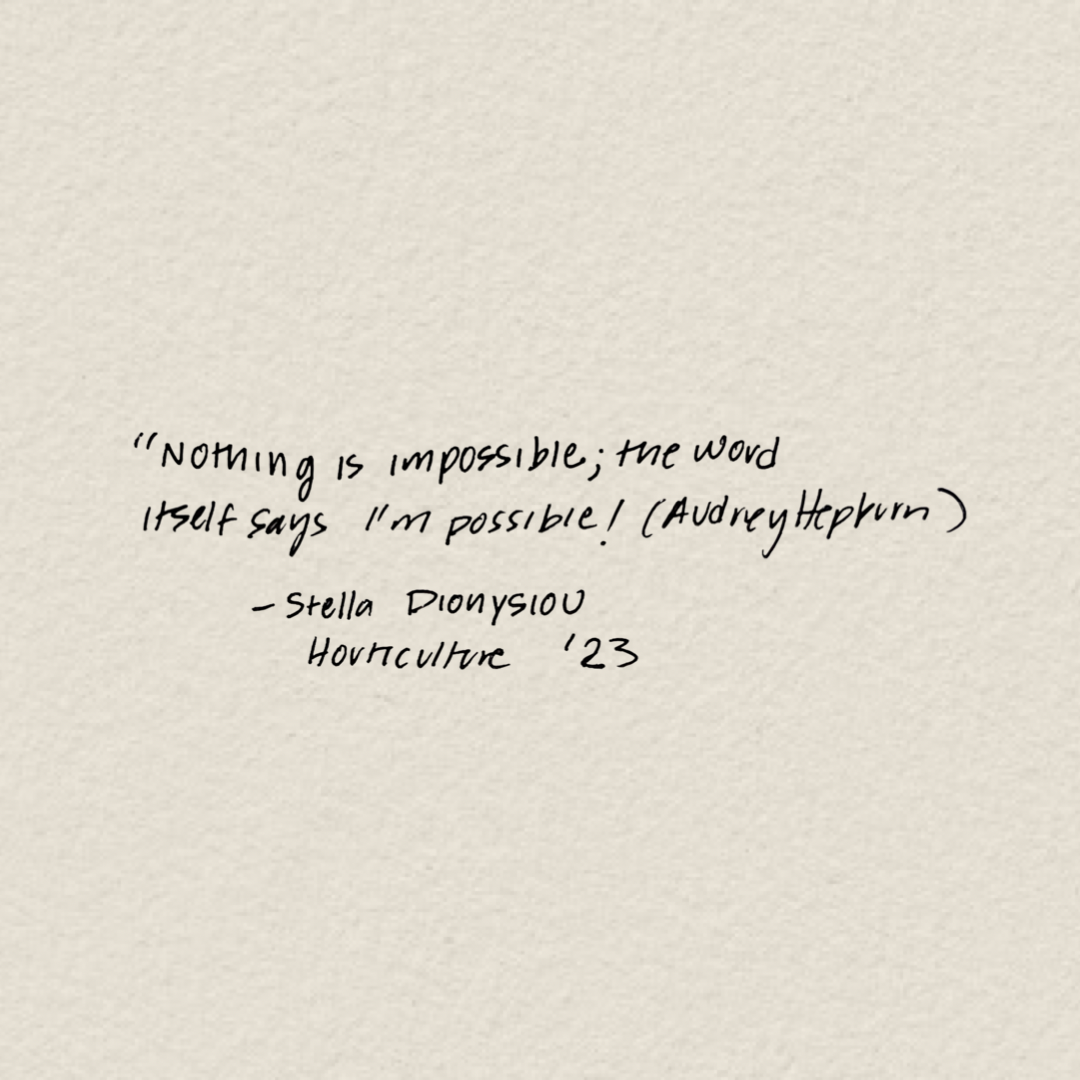 "Nothing is impossible; the word
itself says I'm possible! (Audrey Hepburn)
– Stella Dionysiou
Horticulture '23